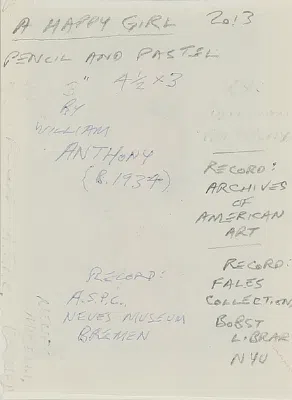 A HAPPY GIRL 2013
PENCIL AND PASTEL
4 1/2 × 3"
BY
WILLIAM
ANTHONY
(B. 1934)
RECORD:
ARCHIVES
OF
AMERICAN
ART
RECORD:
A.S.P.C.,
NEUES MUSEUM
BREMEN
RECORD:
FALES
COLLECTION,
BOBST
LIBRAR
NYU